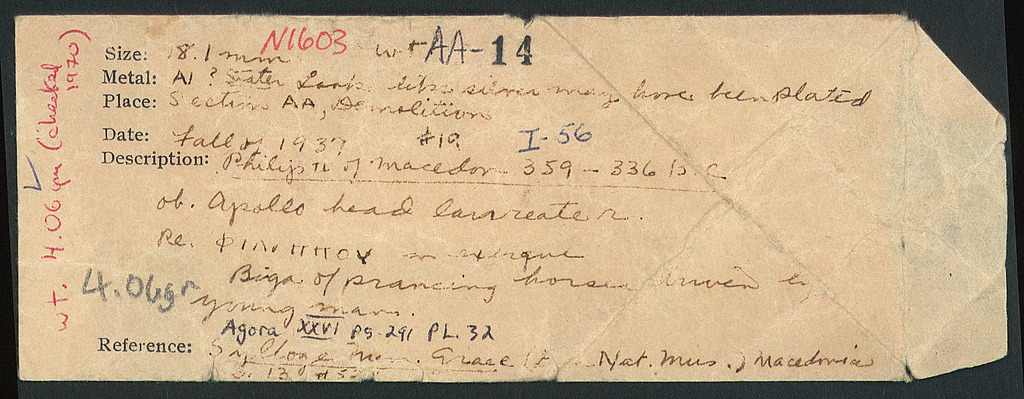 N1603 wt AA-14
Size: 18.1 mm
Metal: AI ? Stater Looks like silver may have been plated
Place: Section AA, Demolition
Date: Fall of 1937 #19 I-56
Description: Philip II of Macedon 359-336 B.C.
ob. Apollo head laureate r.
Re. ΦΙΛΙΠΠΟΥ in exergue
Biga of prancing horses driven by
young man.
Agora XXVI pg. 291 PL. 32
Reference: Sylloge Num. Graec Nat. Mus., Macedonia
wt. 4.06 gm (checked 1970)
4.06gr